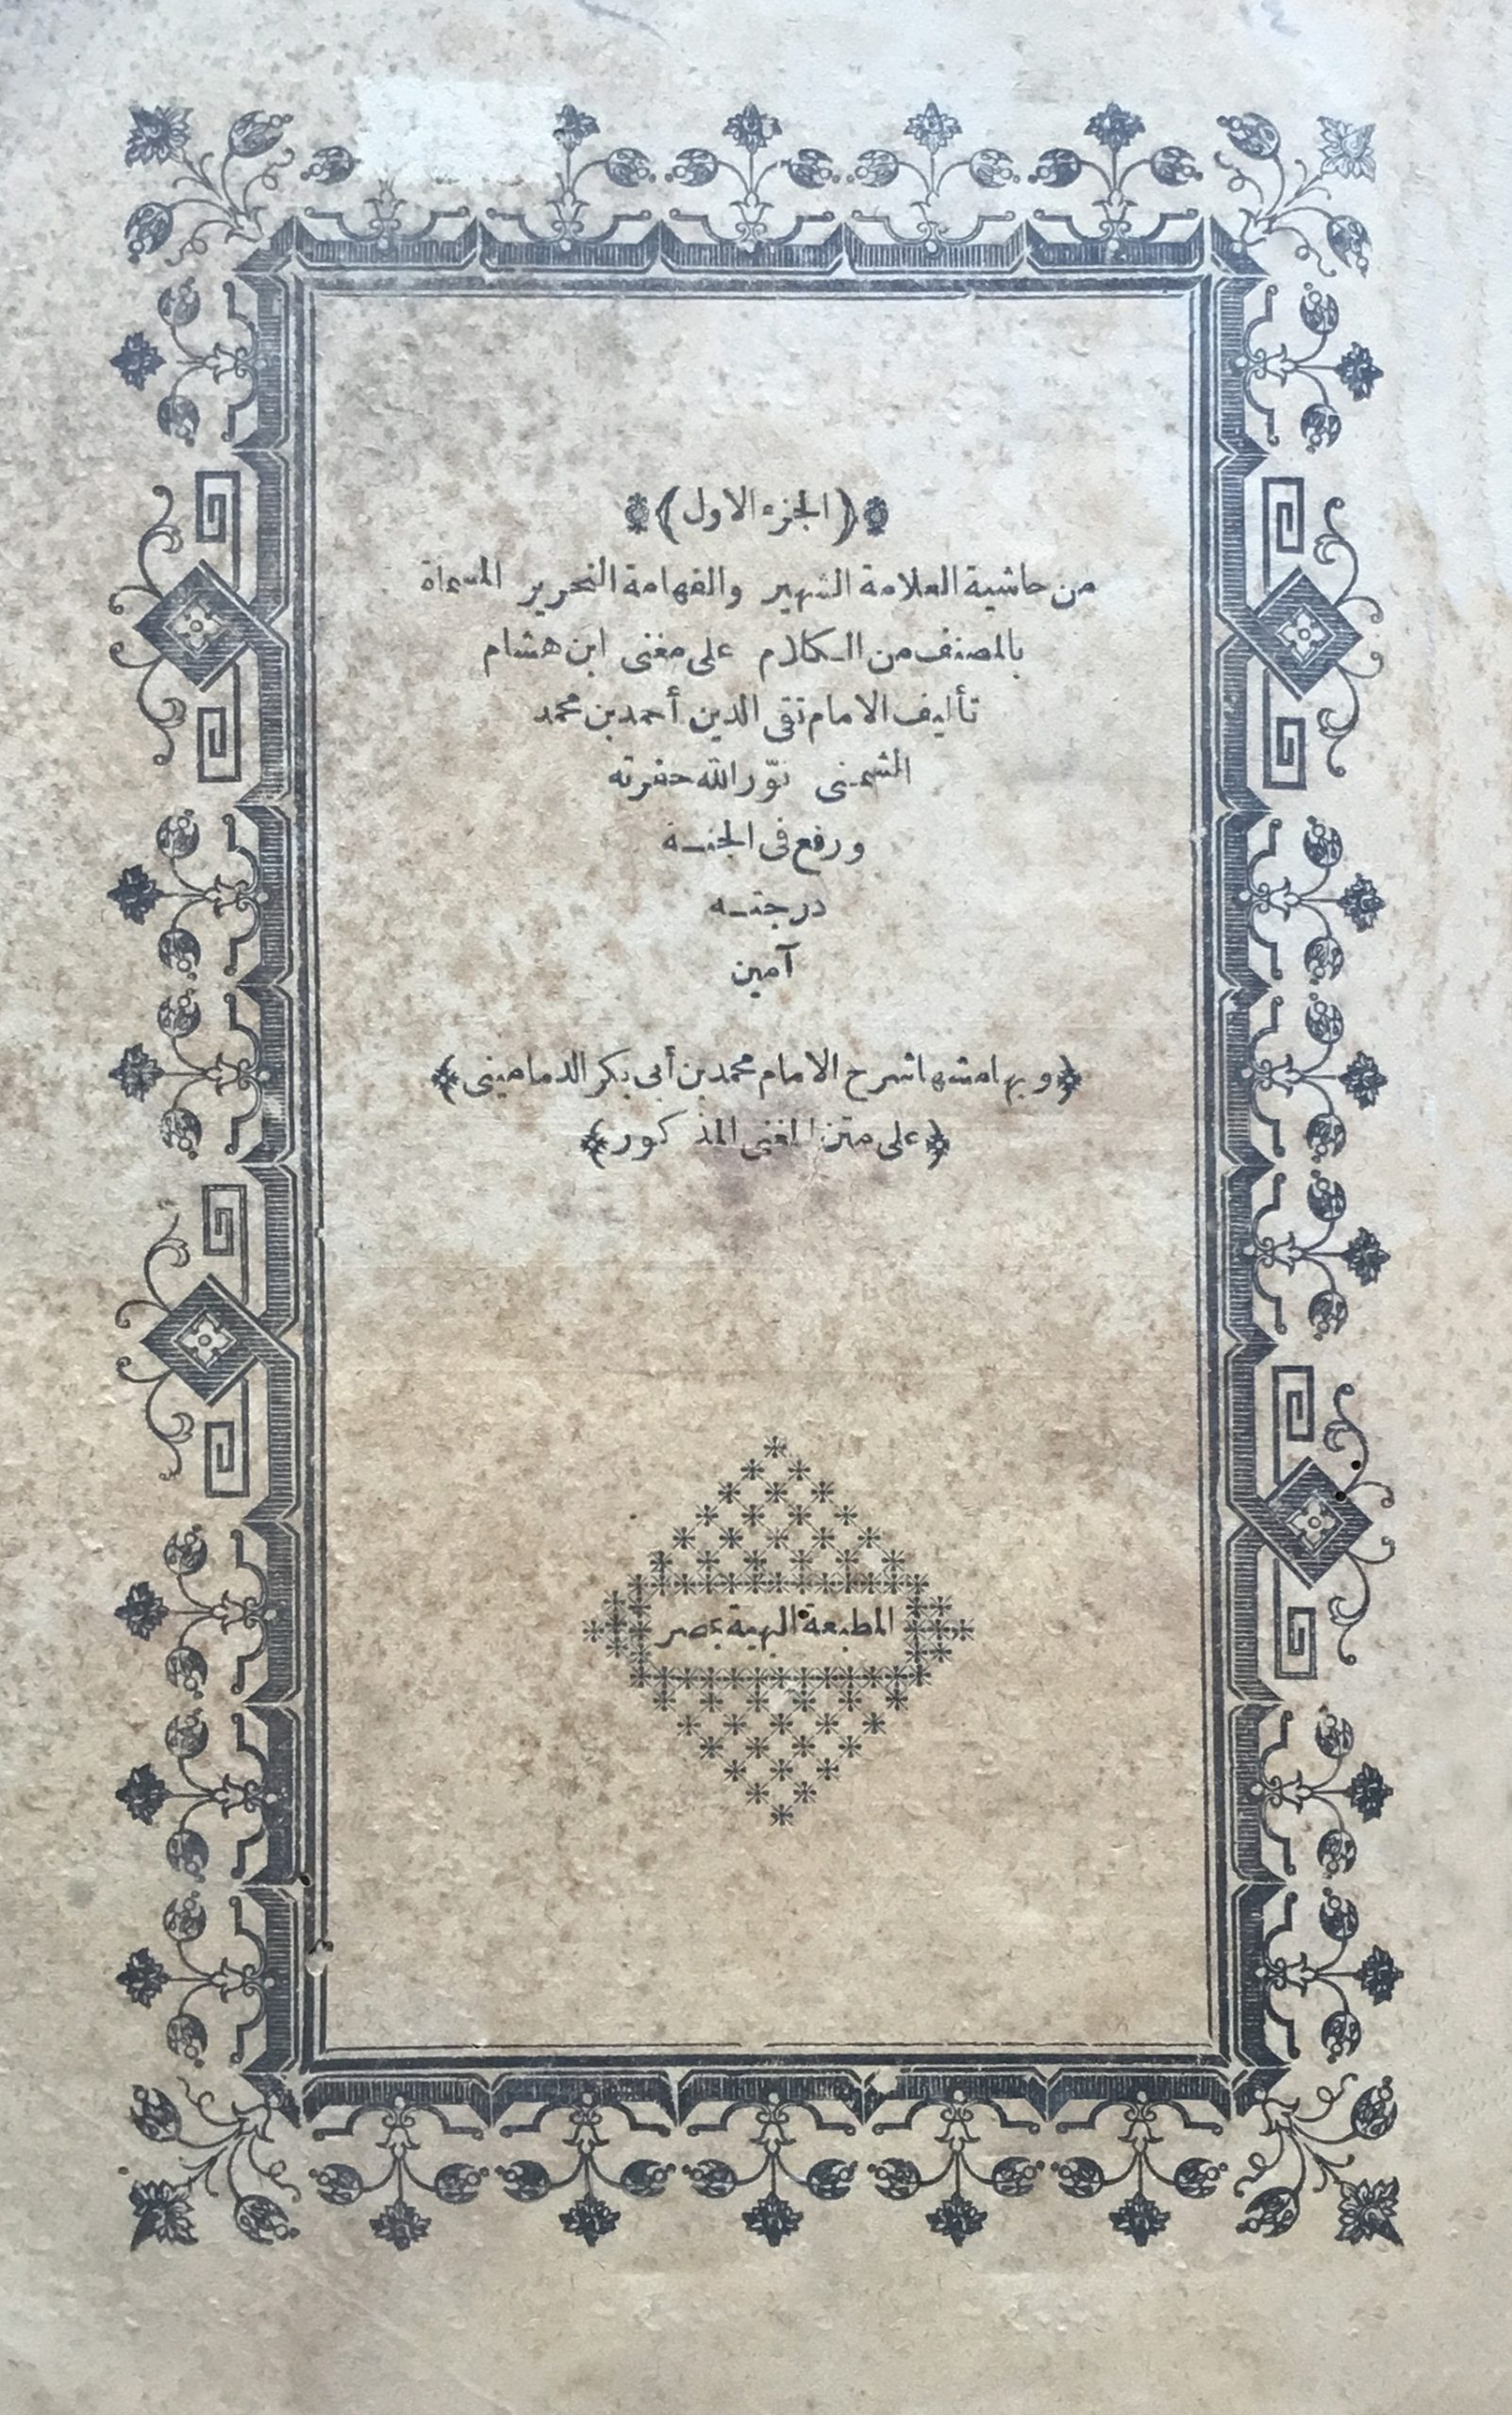 (الجزء الاول)
من حاشية العلامة الشهير والفهامة النحرير المسماة
بالمصنف من الكلام على مغنى ابن هشام
تأليف الامام تقى الدين أحمد بن محمد
الشمنى نوّر الله حفرته
ورفع فى الجنة
درجته
آمين
﴿وبهامشها شرح الامام محمد بن أبى بكر الدمامينى﴾
﴿على متن المغنى المذكور﴾
المطبعة البهية بمصر